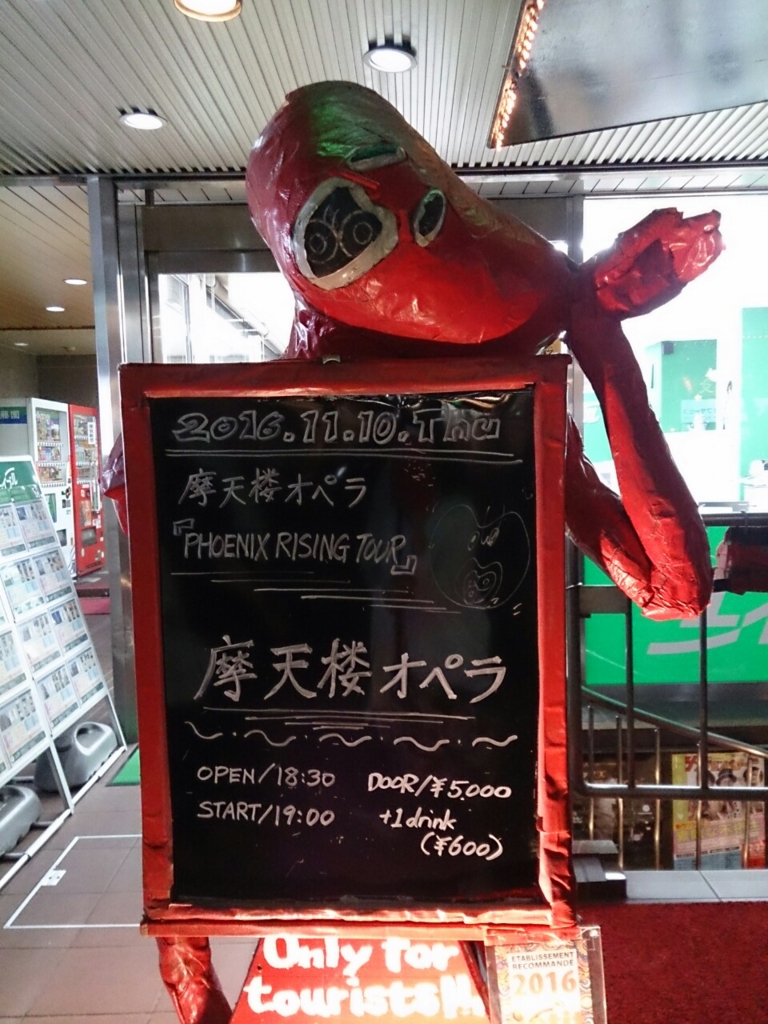 2016.11.10.Thu
摩天楼オペラ
『PHOENIX RISING TOUR』
摩天楼オペラ
OPEN/18:30
START/19:00
DOOR/¥5,000
+1drink
(¥600)
Only for
tourists!!
ETABLISSEMENT
RECOMMANDÉ
2016